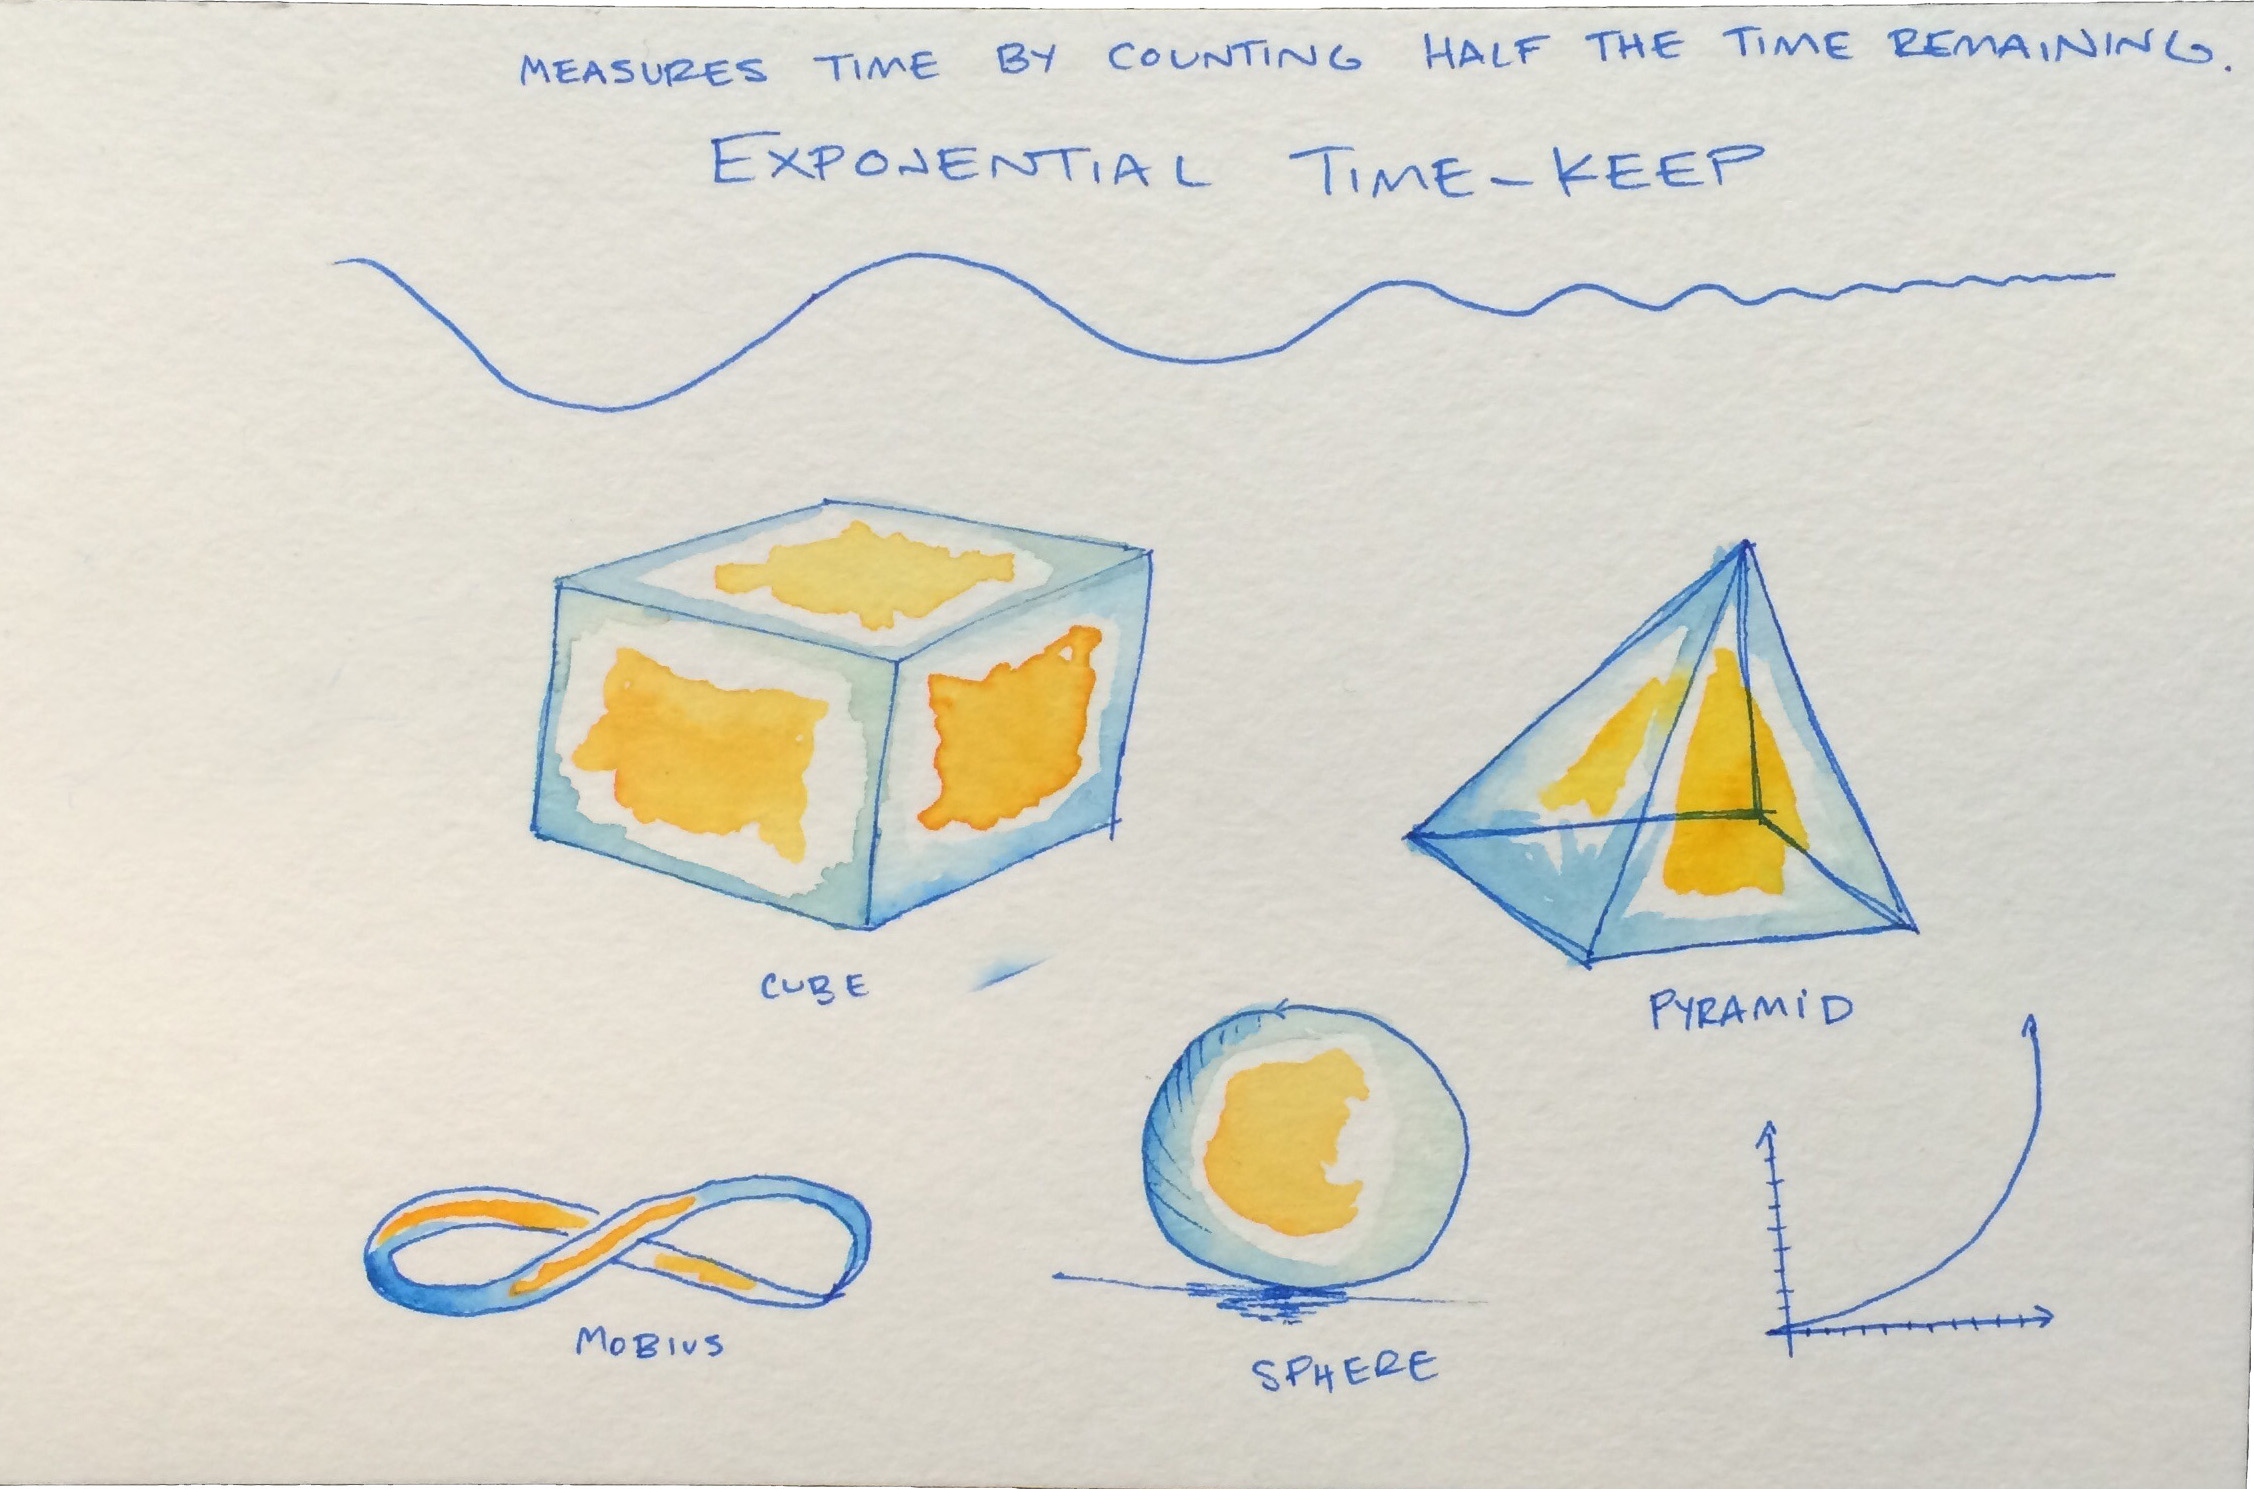 MEASURES TIME BY COUNTING HALF THE TIME REMAINING.
EXPONENTIAL TIME-KEEP
CUBE
PYRAMID
MOBIUS
SPHERE